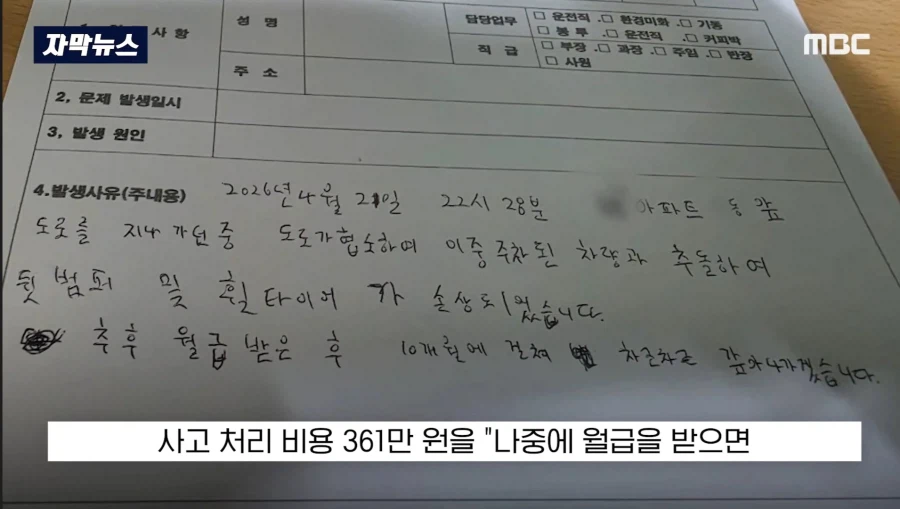 자막뉴스
MBC
사 항
성 명
담당업무
□ 운전직 .□ 환경미화 □ 기동
□ 봉 투 .□ 운전직 .□ 커피박
직 급
□ 부장 .□ 과장 .□ 주임 .□ 반장
□ 사원
주 소
2, 문제 발생일시
3, 발생 원인
4.발생사유(주내용) 2026년 4월 21일 22시 28분 아파트 동
도로를 지나 가던 중 도로가 협소하여 이중주차된 차량과 추돌하여
뒷범퍼 및 휠타이어 가 손상되었습니다.
추후 월급 받은 후 10개월에 걸쳐 차근차근 갚아나가겠습니다.
사고 처리 비용 361만 원을 "나중에 월급을 받으면